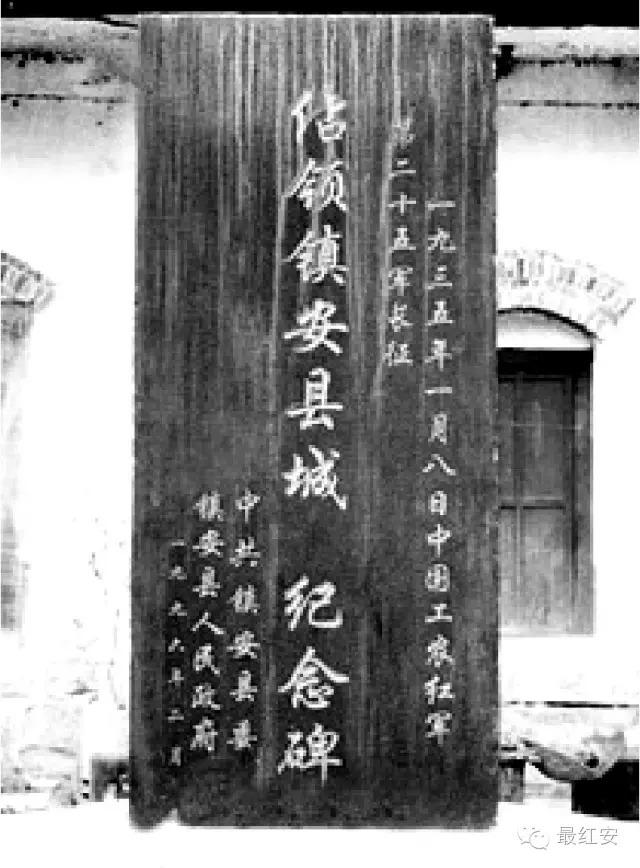 一九三五年一月八日中国工农红军
第二十五军长征
佔领镇安县城 纪念碑
中共镇安县委
镇安县人民政府
一九九六年二月
最红安